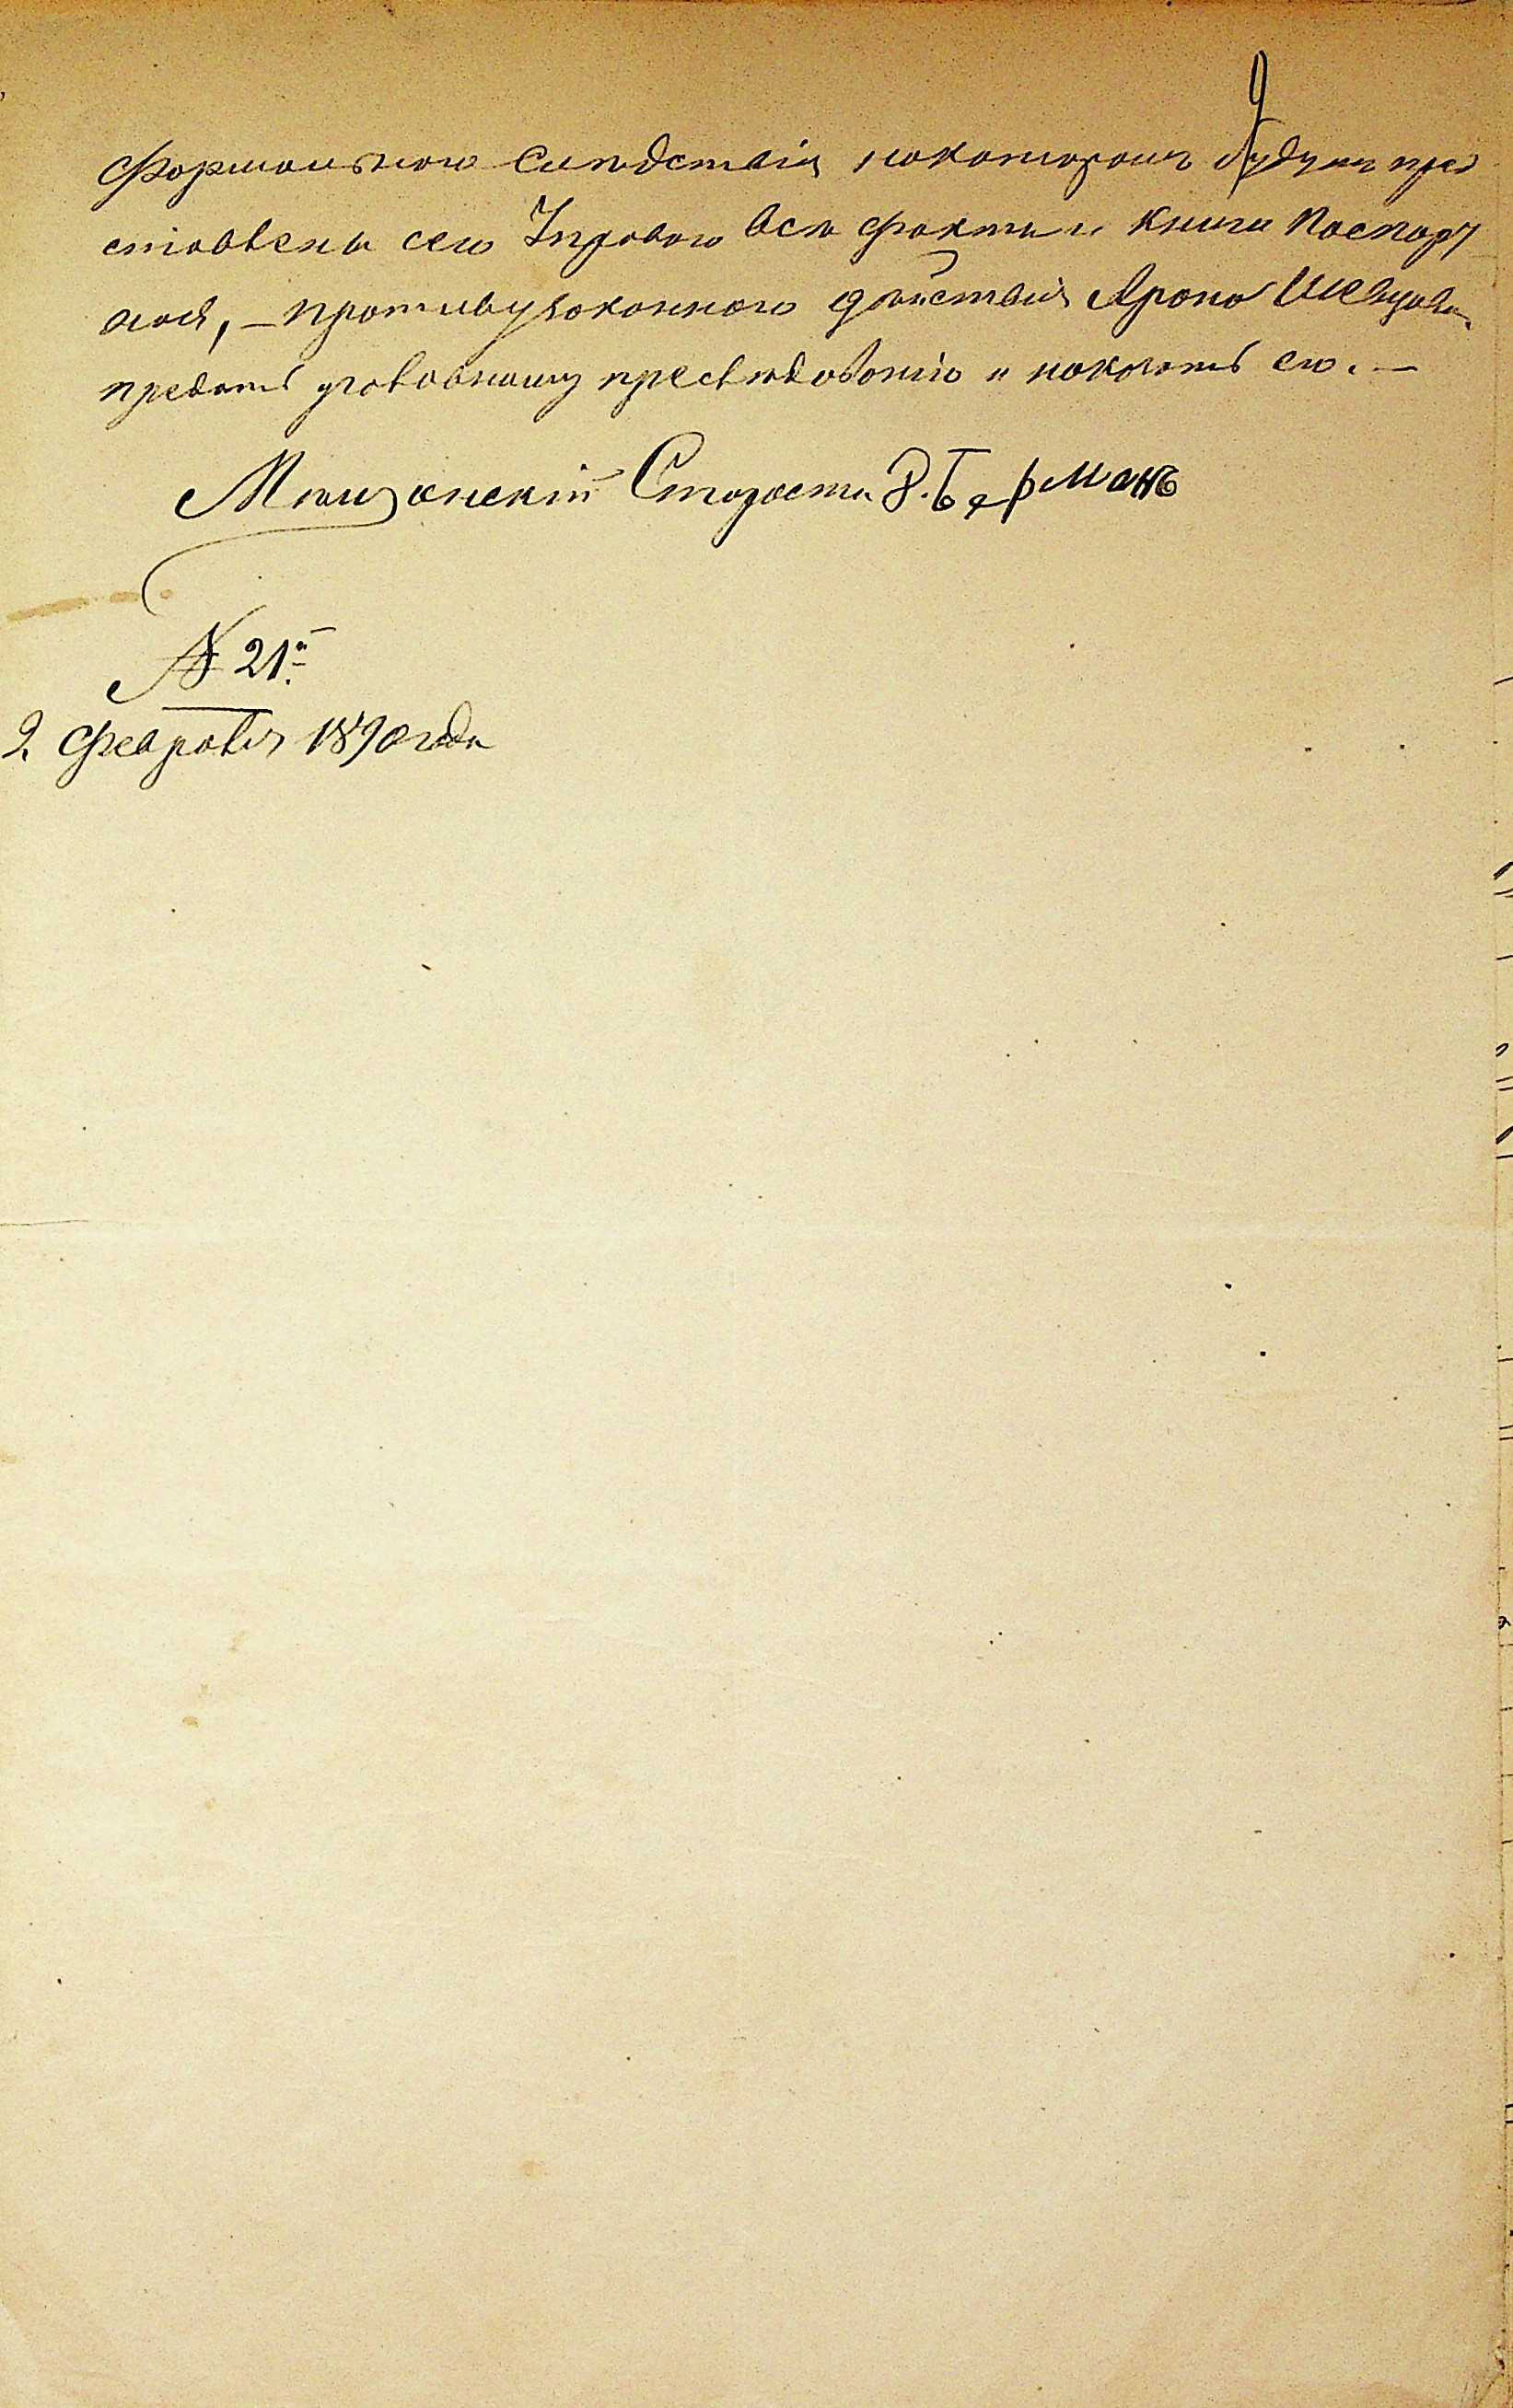 9
формальнаго следствія покоторомъ будутъ пред
ставлены сею Управою все факты и книги Паспорт
ной, – противузаконнаго действія Арона Шевцова
предать уголовному преследованію и наказать его. —
Мещанскій Староста З. Берманъ
№ 21.
2 Февраля 1890 года